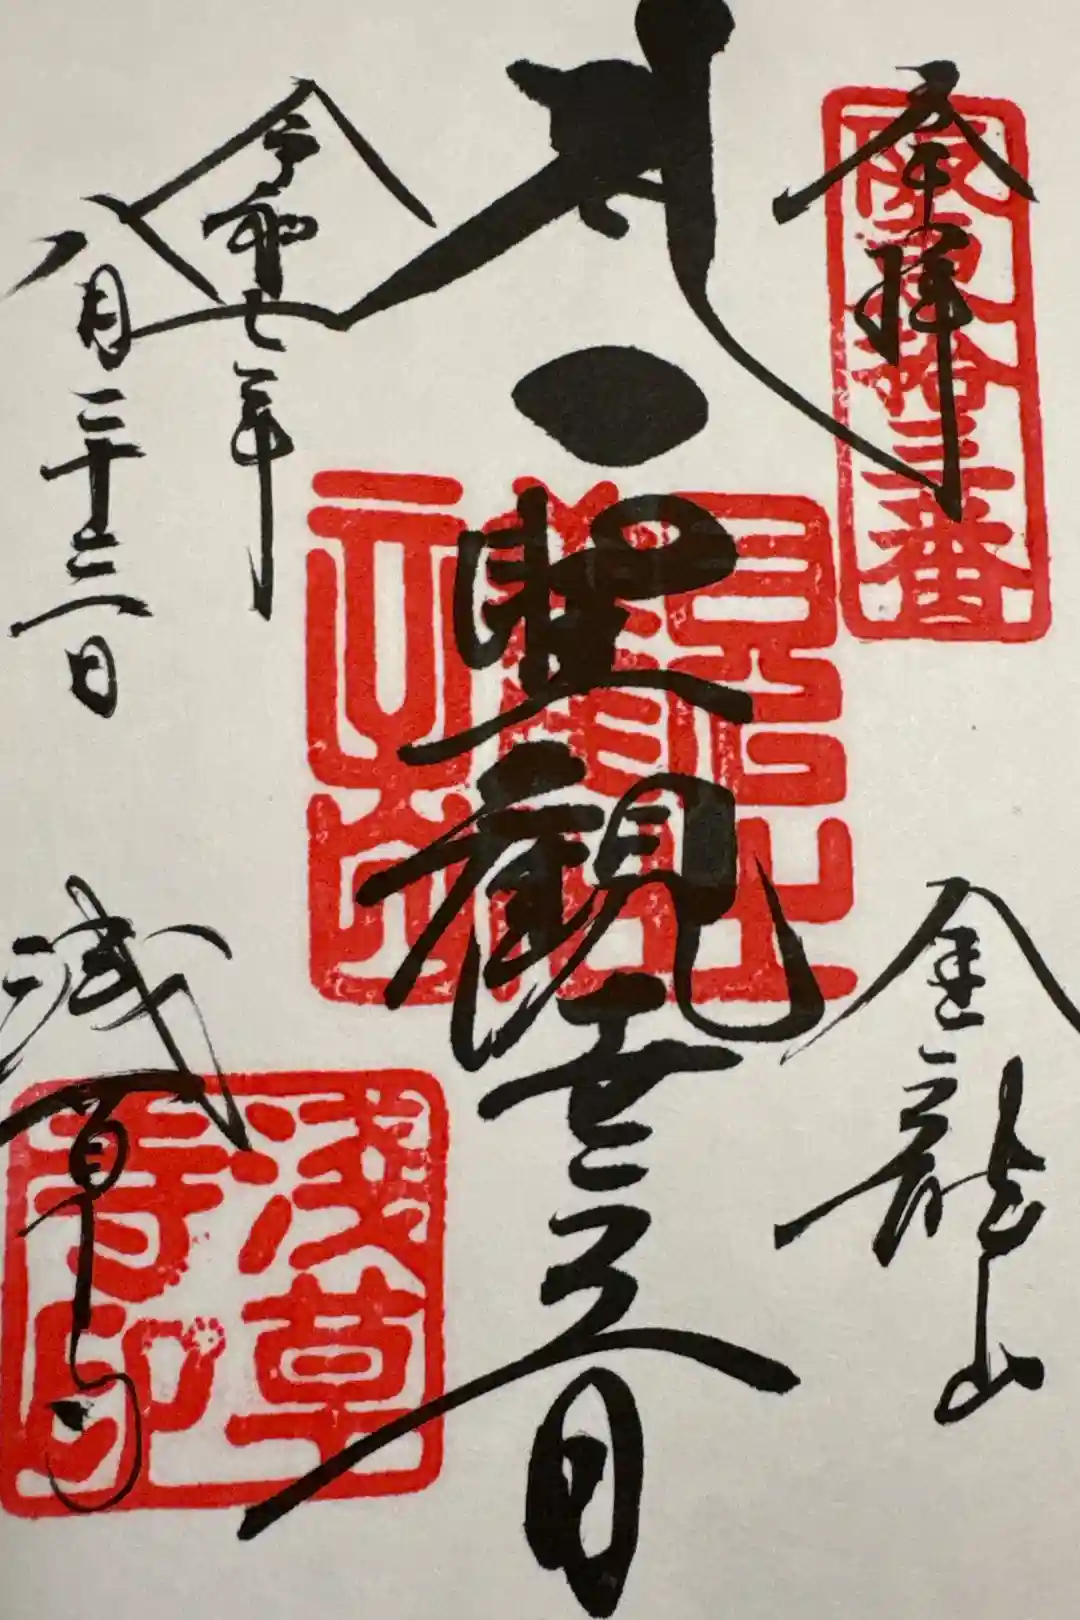 奉拝
阪東拾三番
金龍山
聖観世音
令和七年
八月二十三日
浅草寺
淺草
寺印